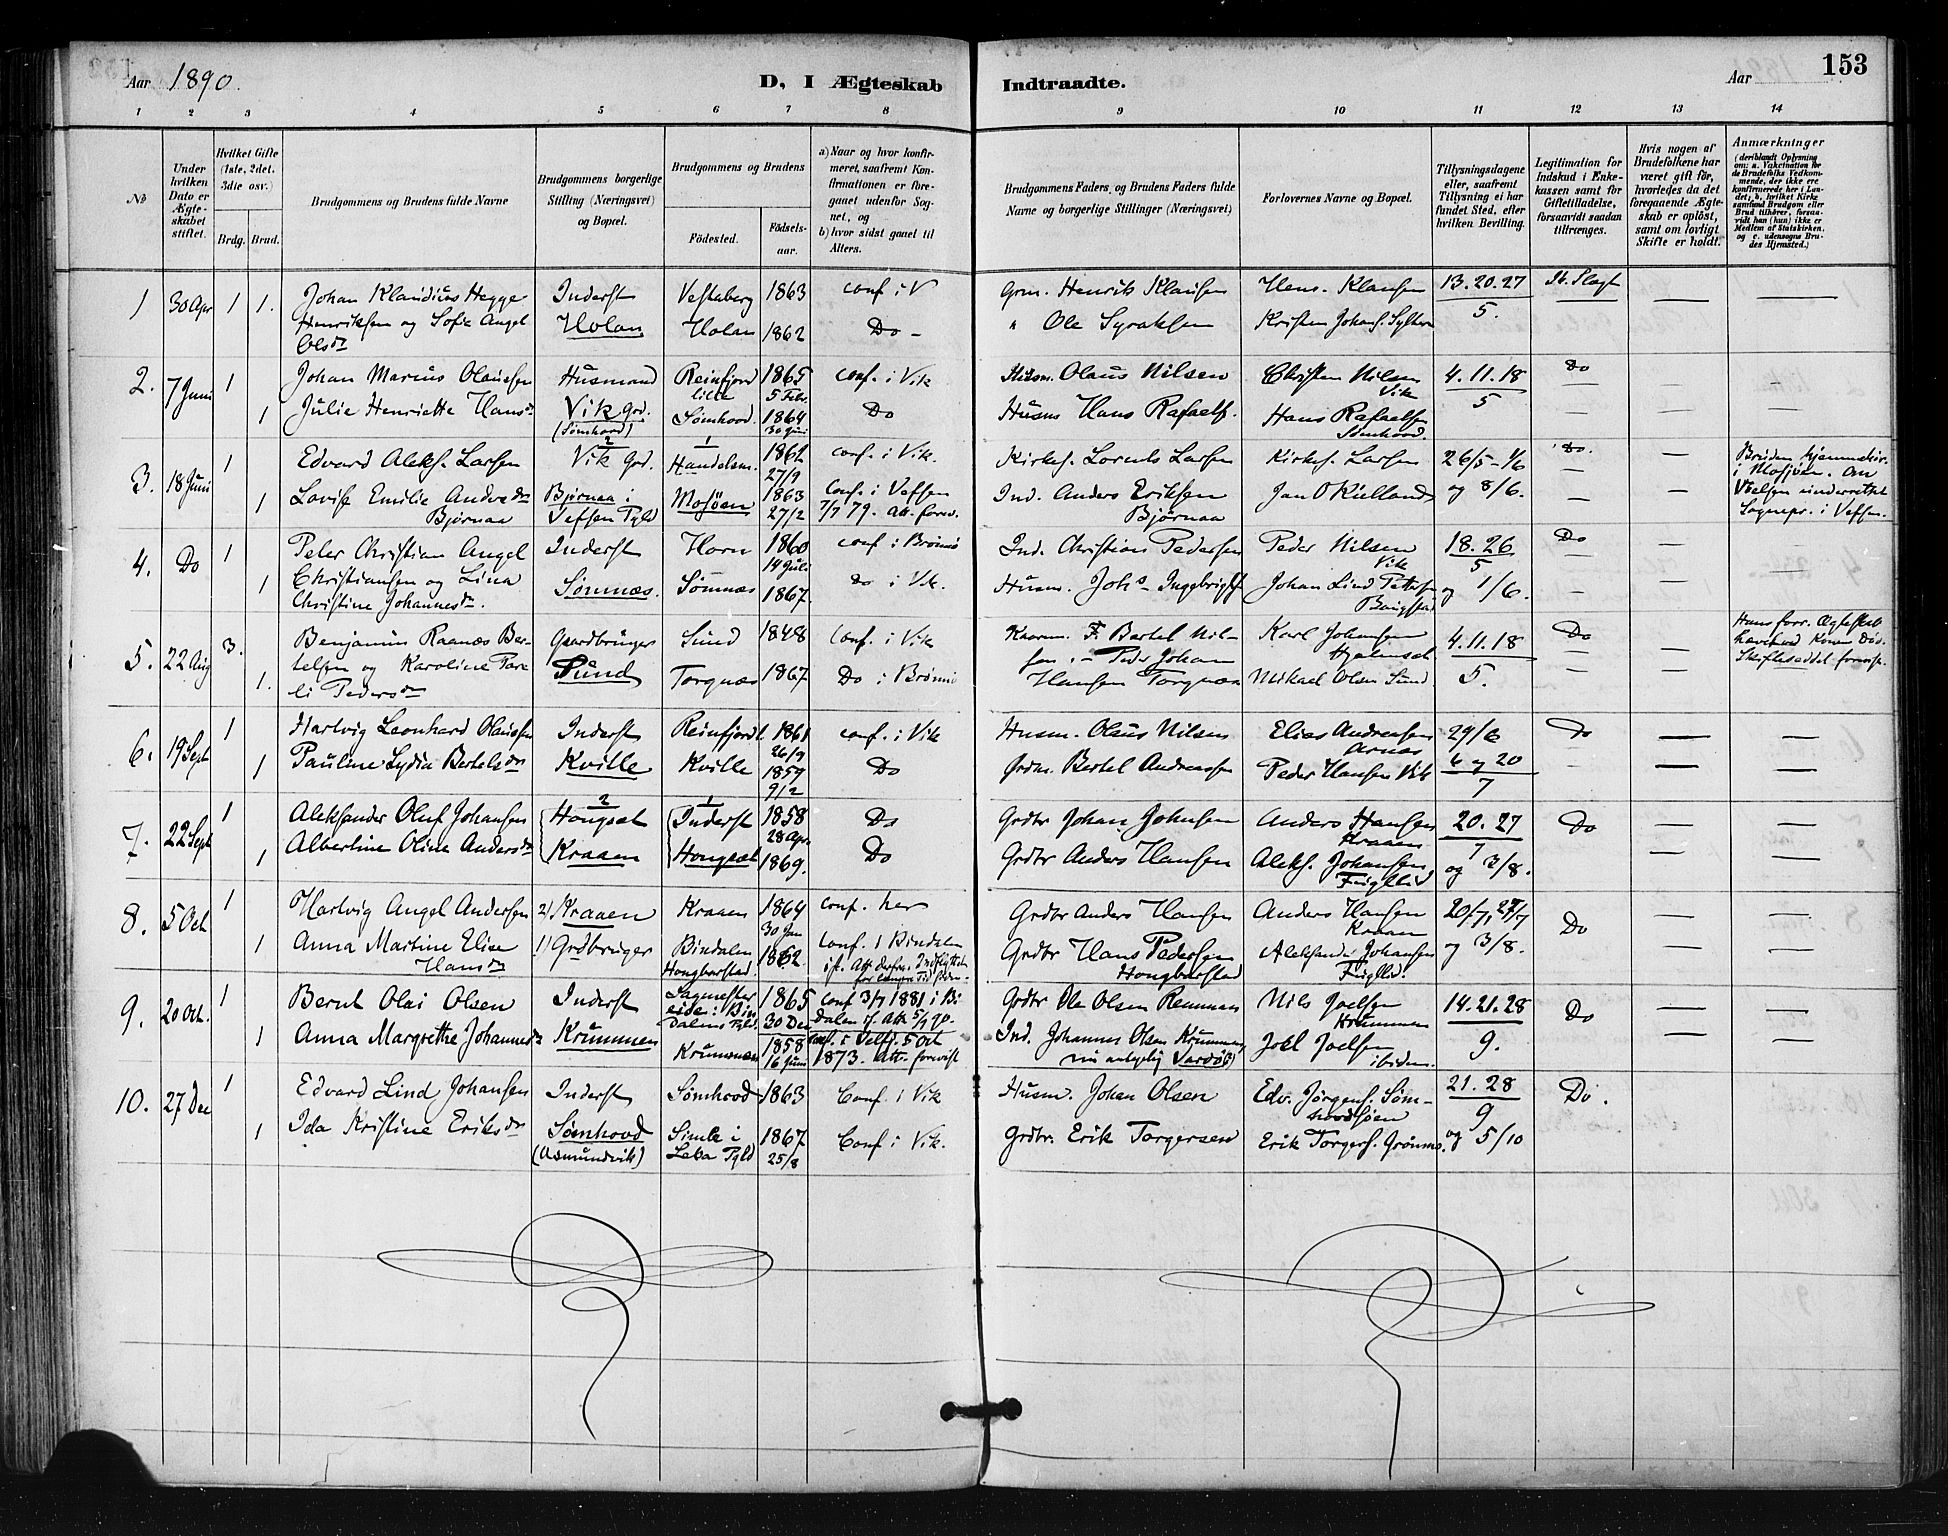 Aar 1890.
D, I Ægteskab
Indtraadte.
Aar
153
1 2 3 4 5 6 7 8 9 10 11 12 13 14
No
Under hvilken Dato er Ægteskabet stiftet.
Hvilket Gifte (1ste, 2det, 3die osv.)
Brdg. Brud.
Brudgommens og Brudens fulde Navne
Brudgommens borgerlige Stilling (Næringsvei) og Bopæl.
Brudgommens og Brudens
Fødested.
Fødselsaar.
a) Naar og hvor konfirmeret, saafremt Konfirmationen er foregaaet udenfor Sognet, og
b) hvor sidst gaaet til Alters.
Brudgommens Faders, og Brudens Faders fulde Navne og borgerlige Stillinger (Næringsvei)
Forlovernes Navne og Bopæl.
Tillysningsdagene eller, saafremt Tillysning ei har fundet Sted, efter hvilken Bevilling.
Legitimation for Indskud i Enkekassen samt for Giftetilladelse, forsaavidt saadan tiltrænges.
Hvis nogen af Brudefolkene har været gift før, hvorledes da det foregaaende Ægteskab er opløst, samt om lovligt Skifte er holdt.
Anmærkninger
(deriblandt Oplysning om: a. Vakcination for de Brudefolks Vedkommende, der ikke ere konfirmerede her i Landet, b. hvilket Kirkesamfund Brudgom eller Brud tilhører, forsaavidt han (hun) ikke er Medlem af Statskirken, og c. udensogns Brudes Hjemsted.)
1 30 Apr 1 1. Johan Klaudius Hegge Inderst Vestaberg 1863 conf i V Grm. Henrik Klausen Hans. Klausen 13.20.27
Henriksen og Sofie Angel Holan Holan 1862 Do - " Ole Syraksen Kristen Johans. 5.
Olsdr
2. 7 Juni 1 Johan Marius Olaussen Husmand Reinfjord 1865 conf. i Vik Husm. Olaus Nilsen Christen Nilsen 4.11.18 Do
lille 5 Febr. Vik 5
1 Julie Henriette Hansdr Vik Grd. Sømhovd. 1864 Do Husm Hans Rafaels. Hans Rafaelsen
(Sømhovd) 30 Juni Sømhovd.
3. 18 Juni 1 Edvard Aleks. Larsen Vik Grd. Handelsm. 1862 conf. i Vik. Kirkes. Larsen Kirkes. Larsen 26/5 - 1/6 Do.
27/9
1 Lovise Emilie Andersdr Bjørnaa i Mosjøen 1863 Conf. i Vefsen Ind. Anders Eriksen Jan O Kielland og 8/6.
Bjørnaa Vefsen Pgld 27/2 7/7 79. Att. forev. Bjørnaa
Bruden hjemmehør.
i Mosjøen. Om
Vielsen underrettet
Sognepr. i Vefsen.
4. Do 1 Peter Christian Angel Inderst Horn 1860 conf i Brønnø Ind. Christian Pedersen Peder Nilsen 18.26 Do
14 Juli Vik 5
1 Christiansen og Lina Sømnæs. Sømnæs 1867. Do i Vik. Husm. Johs Ingebrigts. Johan Lind og 1/6.
Christine Johannesdr.
5. 22 Aug 3. Benjamin Raanæs Ber- Gaardbruger Sund 1848 Conf. i Vik F. Bertel Nil- Karl Johansen 4.11.18 Do
1. telsen og Karoline Pare- Sund Torgnæs 1867 Do i Brønnø sen - Peder Johan 5.
li Pedersdr Hansen Torgnæs Mikael Olsen Sund.
Hans forr. Ægteskab
hævet ved Konen Død.
Skifteseddel forevist.
6. 19 Sept 1 Hartvig Leonhard Olaussen Inderst Reinfjord l. 1861 conf. i Vik Husm. Olaus Nilsen Elias Andreassen 29/6 Do
26/9 Arnæs
1 Pauline Lydia Bertelsdr Kville Kville 1859 Do Grdm. Bertel Andreassen Peder Hansen Vik 6 og 20
9/2 7
7. 22 Sept 1 Aleksander Oluf Johansen Hongset Inderst 1858 Do Grdbr Johan Johnsen Anders Hansen 20.27 Do
28 Apr. Kraaen 7
1 Albertine Oline Andersdr Kraaen Hongset 1869. Do Grdbr Anders Hansen Aleks. Johansen og 3/8.
8. 5 Oct 1 Hartvig Angel Andersen 2) Kraaen Kraaen 1864 conf. her Grdbr Anders Hansen Anders Hansen 20/7, 27/7 Do
30 Jan Kraaen
1 Anna Martine Elise 1) Grdbruger Bindalen 1862 Conf. i Bindalen Grdbr Hans Pedersen Aleksander Johansen og 3/8.
Hansdr Hongbarstad. Hongbarstad
9. 20 Oct. 1 Bernt Olai Olsen Inderst 1865 Conf 3/7 1881 i Bi Grdbr Ole Olsen Nils Joelsen 14.21.28 Do
30 Dec dalen if. Att 5/9 90. Krummen 9.
1 Anna Margrethe Johannesdr Krummen Krummen 1858 conf. i Velfj. 5 Oct Ind. Johannes Olsen Krummen Joel Joelsen
16 Juni 1873. Att. forevist nu antagelig Vardø(?) ibidem.
10. 27 Dec 1 Edvard Lind Johansen Inderst Sømhovd 1863 Conf. i Vik Husm. Johan Olsen Edv. Jørgens. Søm- 21.28 Do.
hovdsjøen 9
1 Ida Kristine Eriksdr Sømhovd Simle i 1867 Conf. i Vik. Grdbr. Erik Torgersen Erik Torgers. Grønmo. og 5/10
(Asmundvik) Leka Pgld 25/8